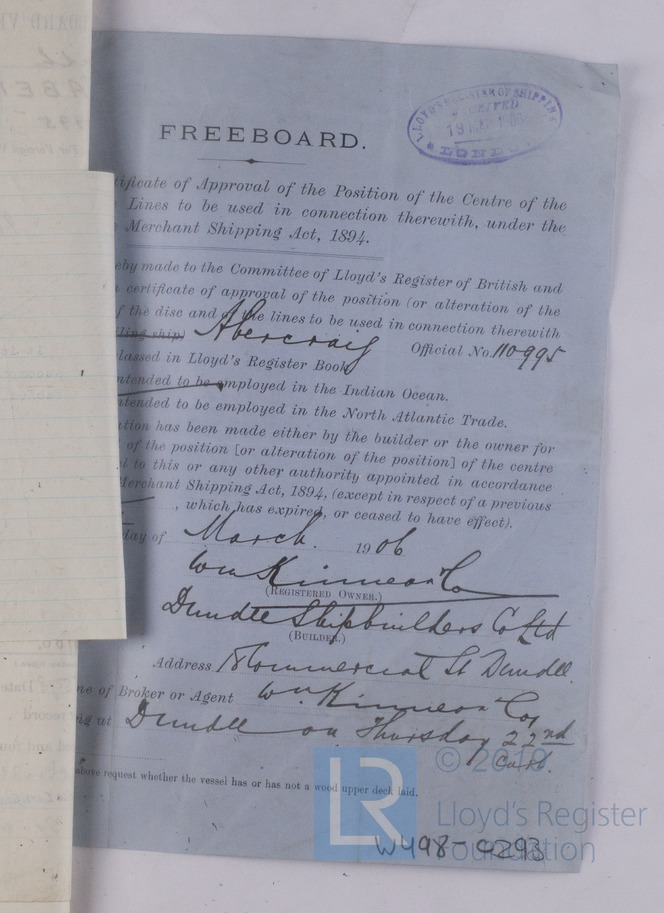 LLOYD'S REGISTER OF SHIPPING
RECEIVED
LONDON
FREEBOARD.
ificate of Approval of the Position of the Centre of the
Lines to be used in connection therewith, under the
Merchant Shipping Act, 1894.
eby made to the Committee of Lloyd's Register of British and
certificate of approval of the position (or alteration of the
of the disc and of the lines to be used in connection therewith
iling ship) Abercraig Official No. 110995
classed in Lloyd's Register Book
ntended to be employed in the Indian Ocean.
ntended to be employed in the North Atlantic Trade.
ation has been made either by the builder or the owner for
of the position [or alteration of the position] of the centre
d to this or any other authority appointed in accordance
Merchant Shipping Act, 1894, (except in respect of a previous
, which has expired, or ceased to have effect).
day of March 1906
Wm Kinnear & Co
(REGISTERED OWNER.)
Dundee Shipbuilders Co Ltd
(BUILDER.)
Address Commercial St Dundee
ne of Broker or Agent Wm Kinnear & Co,
ng at Dundee on Thursday 22nd
above request whether the vessel has or has not a wood upper deck laid.
© 2019
LR Lloyd's Register
Foundation
W498-0293